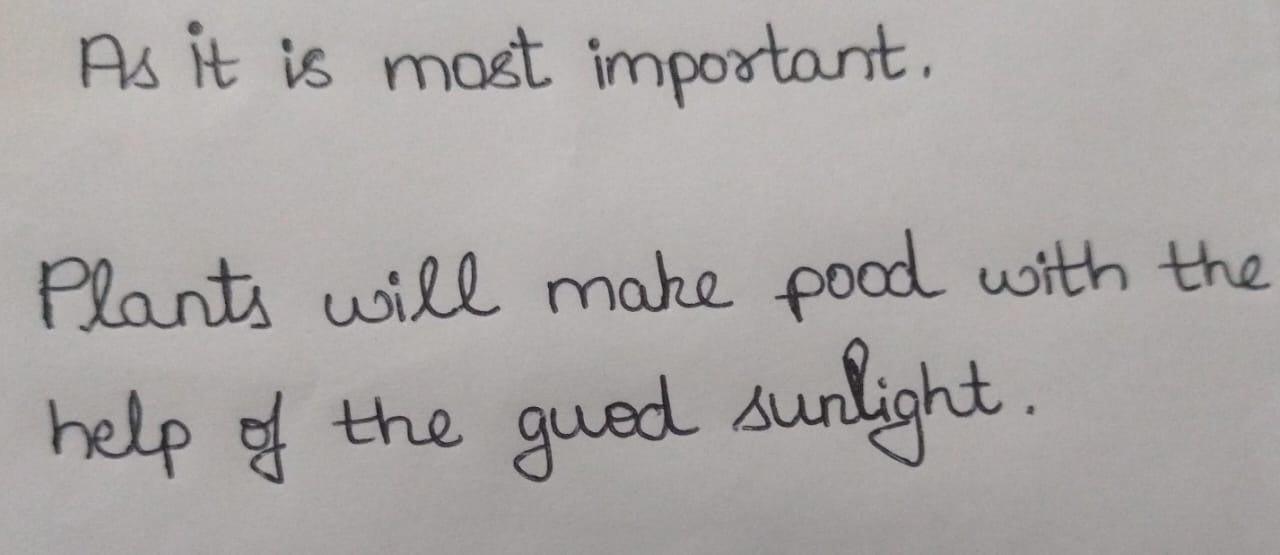 As it is most important.
Plants will make pood with the
help of the gued sunlight.